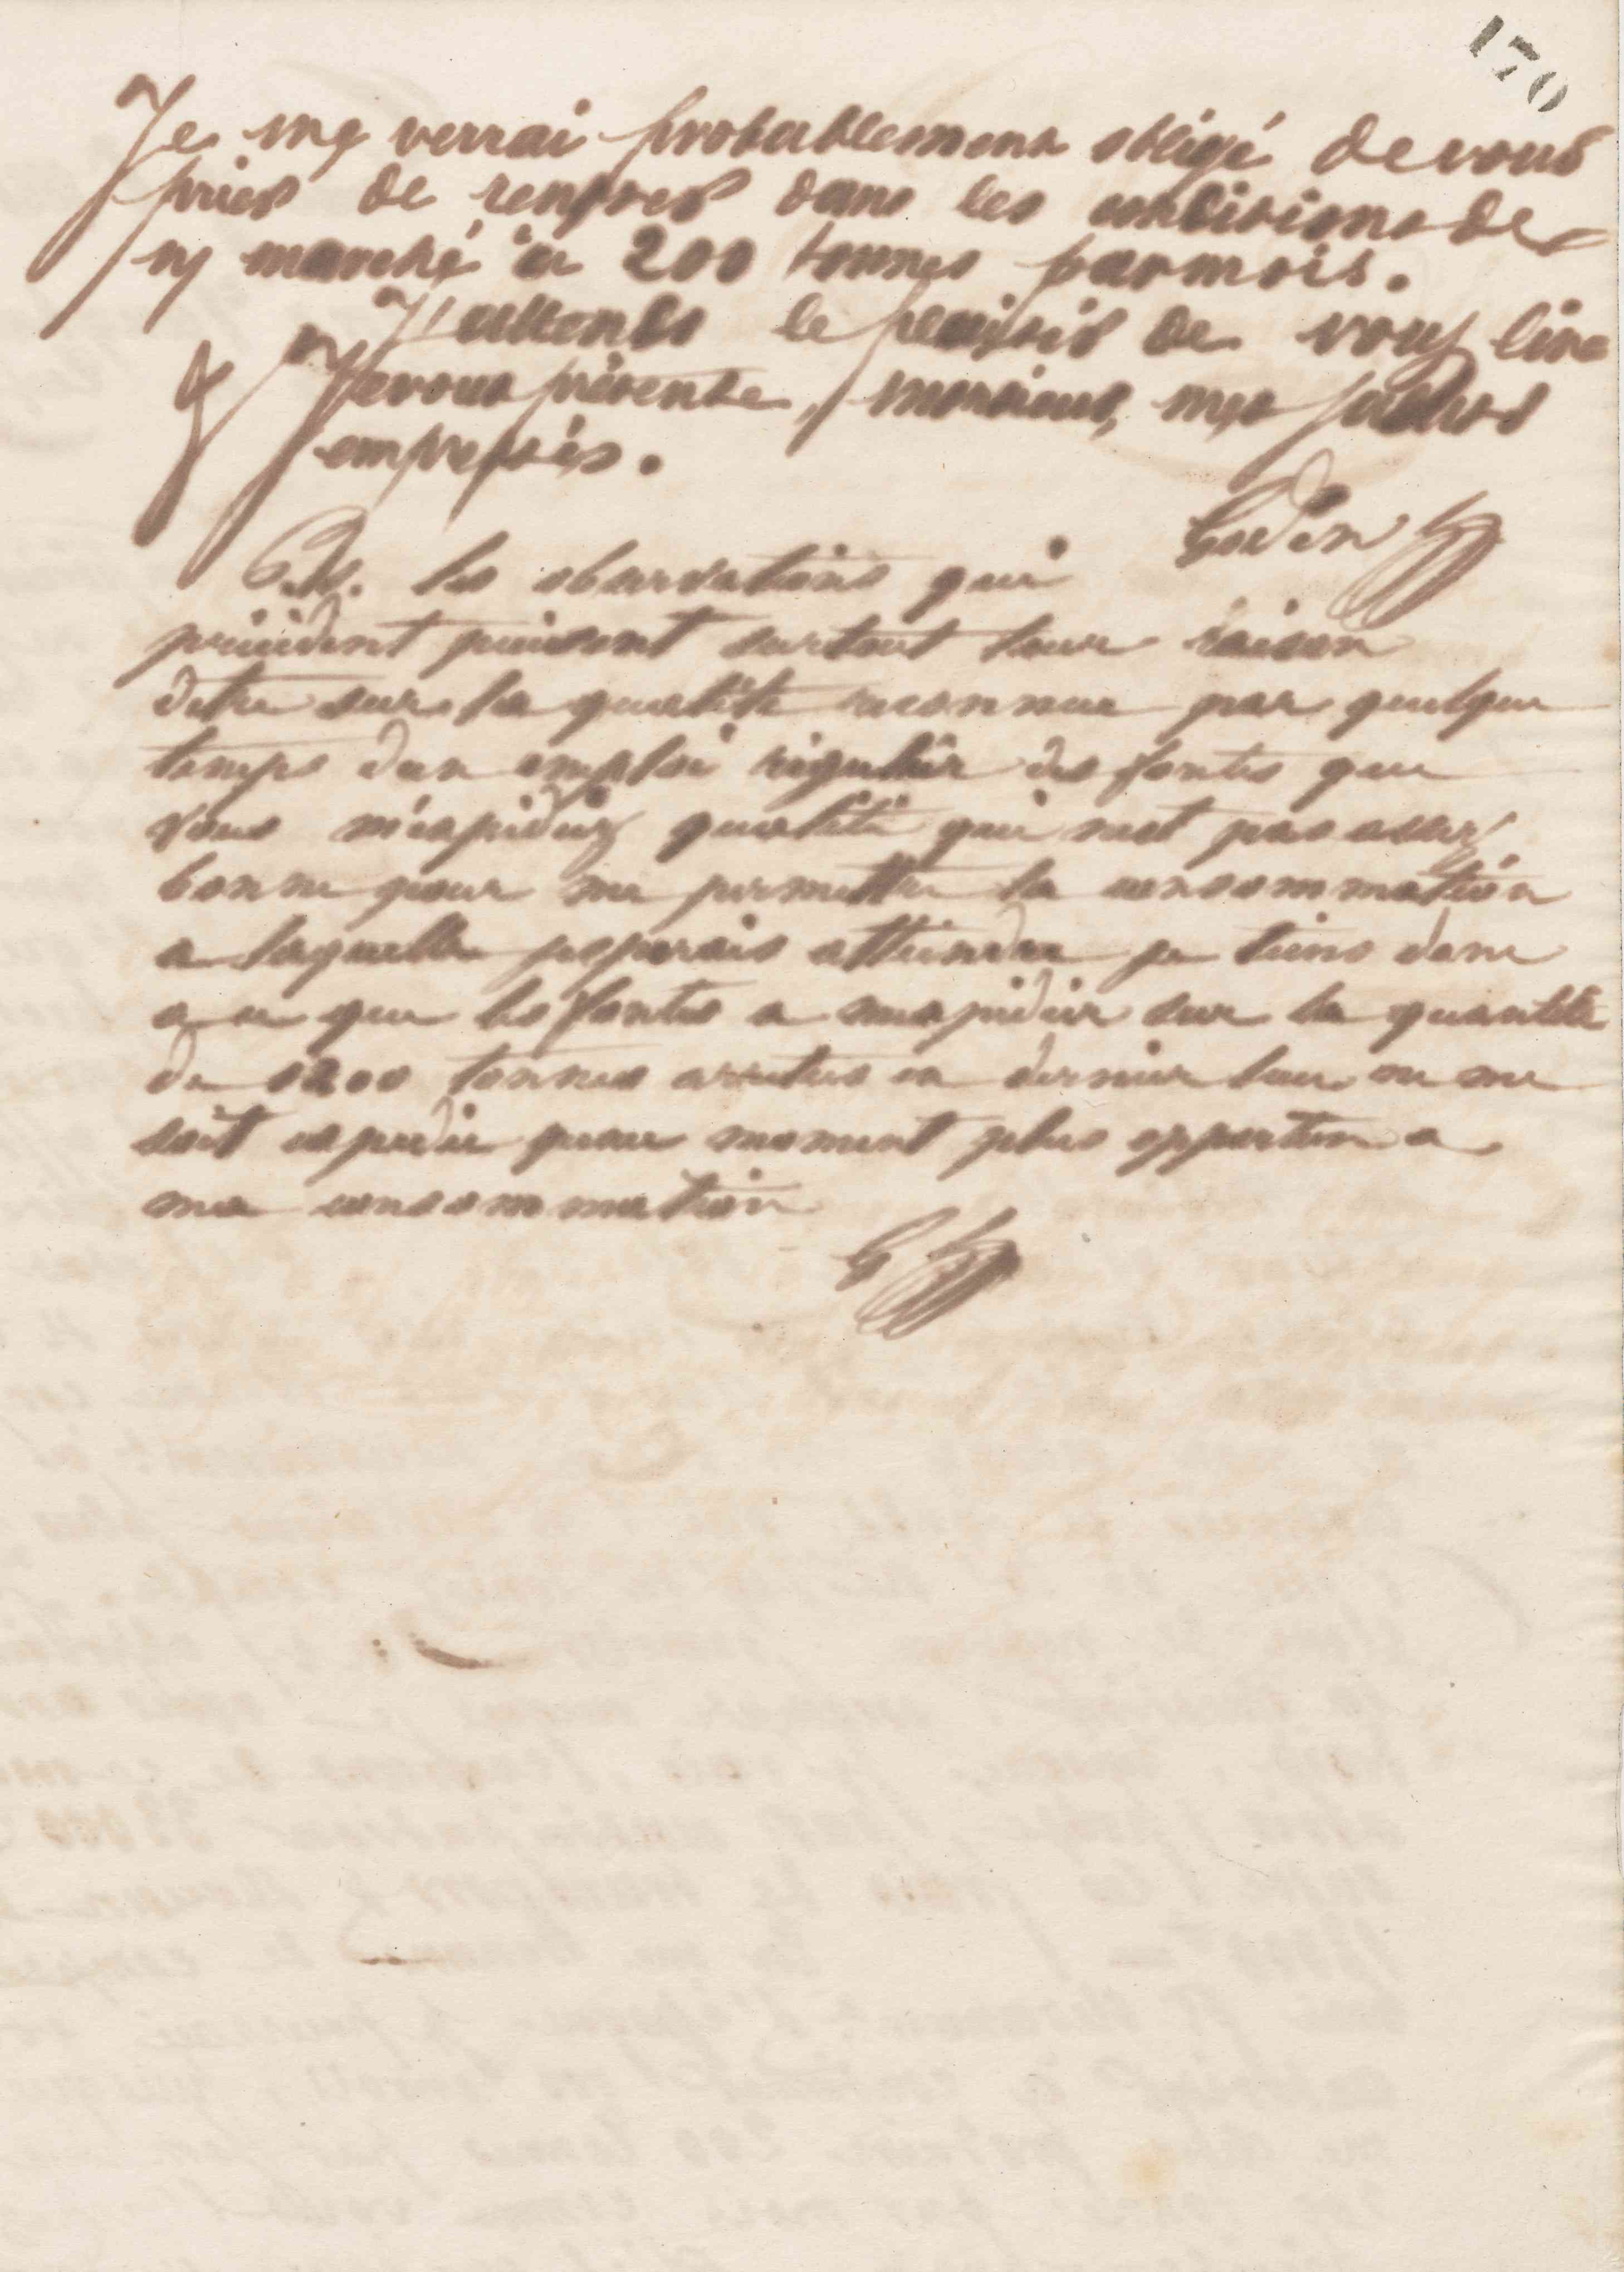 170
Je me verrai probablement obligé de vous
prier de rentrer dans les conditions de
n/ marché à 200 tonnes par mois.
J'attends le plaisir de vous lire
& Je vous présente, monsieur, mes saluts
empressés.
Godin
P.S. les observations qui
précèdent puisent surtout leur raison
detre sur la qualité reconnue par quelque
temps dun emploi régulier des fontes que
vous m'expediez qualité qui nest pas assez
bonne pour me permettre la consommation
a laquelle jesperais atteindre je tiens donc
a ce que les fontes a mexpedier sur la quantité
de 1200 tonnes arretees en dernier lieu ne me
soit expedie quau moment plus opportun a
ma consommation
G